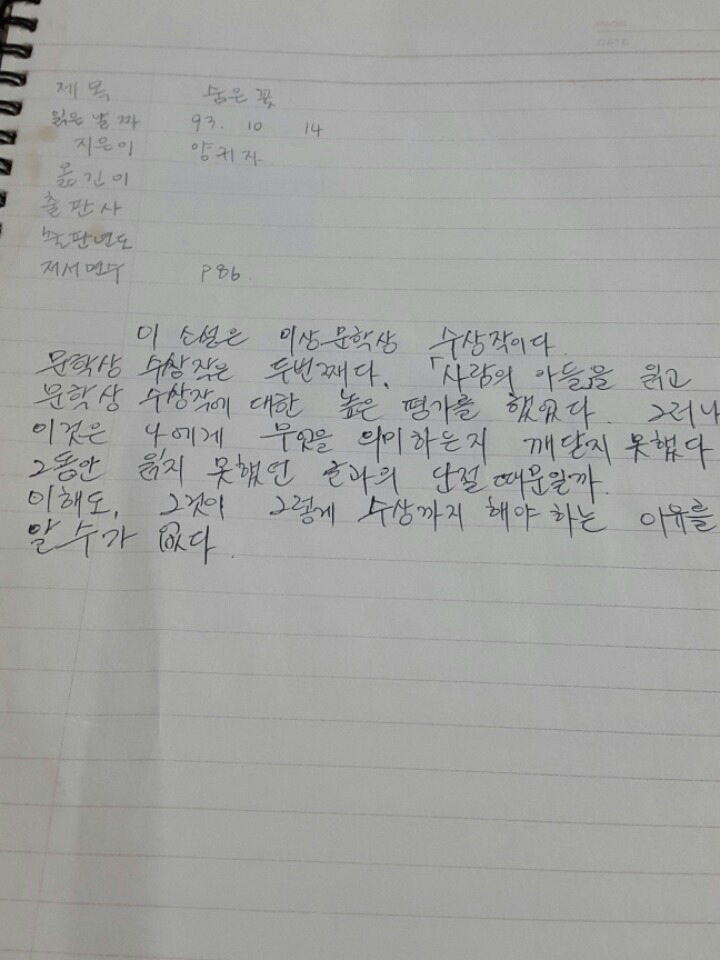 DATE
제목 숨은 꽃
읽은 날짜 93. 10 14
지은이 양귀자
옮긴이
출판사
출판년도
저서면수 P86.
이 소설은 이상문학상 수상작이다.
문학상 수상작은 두번째다. 「사람의 아들」을 읽고
문학상 수상작에 대한 높은 평가를 했었다. 그러나
이것은 나에게 무엇을 의미하는지 깨닫지 못했다
그동안 읽지 못했던 단절 때문일까.
이해도, 그것이 그렇게 수상까지 해야 하는 이유를
알 수가 없다.